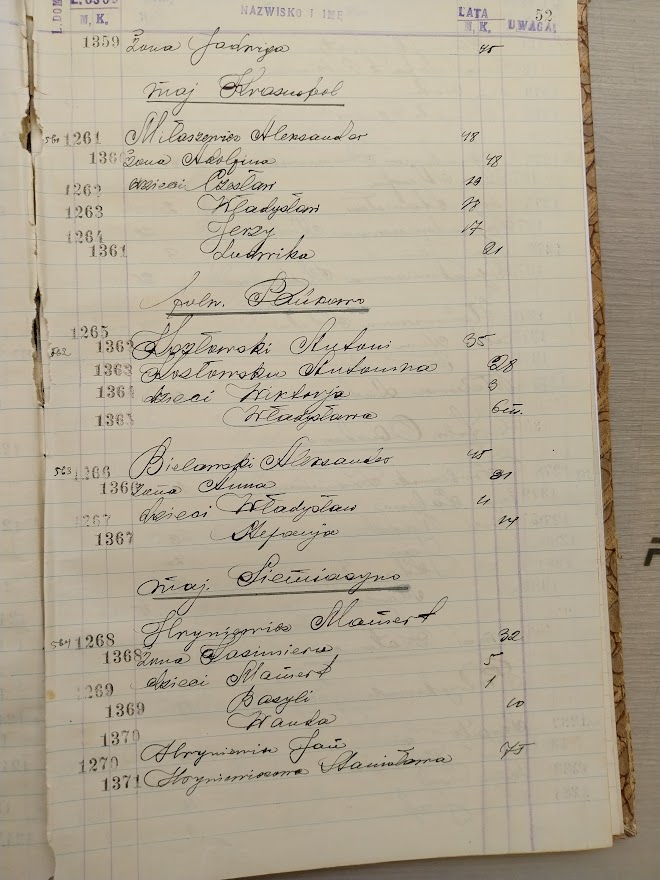 NAZWISKO I IMIĘ LATA 52
M. K. M. K. UWAGA
1359 Żona Jadwiga 45
maj Krasnopol
561 1261 Miłaszewicz Aleksander 48
136 Żona Adolfina 48
1262 dzieci Czesław
1263 Władysław
1264 Jerzy 17
1361 Ludwika 21
folw.
1265
562 1362 Kozłowski Antoni 35
1363 Kozłowska Antonina 28
1364 dzieci Wiktorja 3
1365 Władysława 6 m.
563 1266 Bielawski Aleksander 45
1366 Żona Anna 31
1267 dzieci Władysław 11
1367 Stefanja 14
maj.
564 1268 Hryniewicz 32
1368 Żona Kazimiera
1269 dzieci 5
1369 Bazyli 1
1370 Wanda 10
1270 Hryniewicz Jan 75
1371 Hryniewiczowa Stanisława